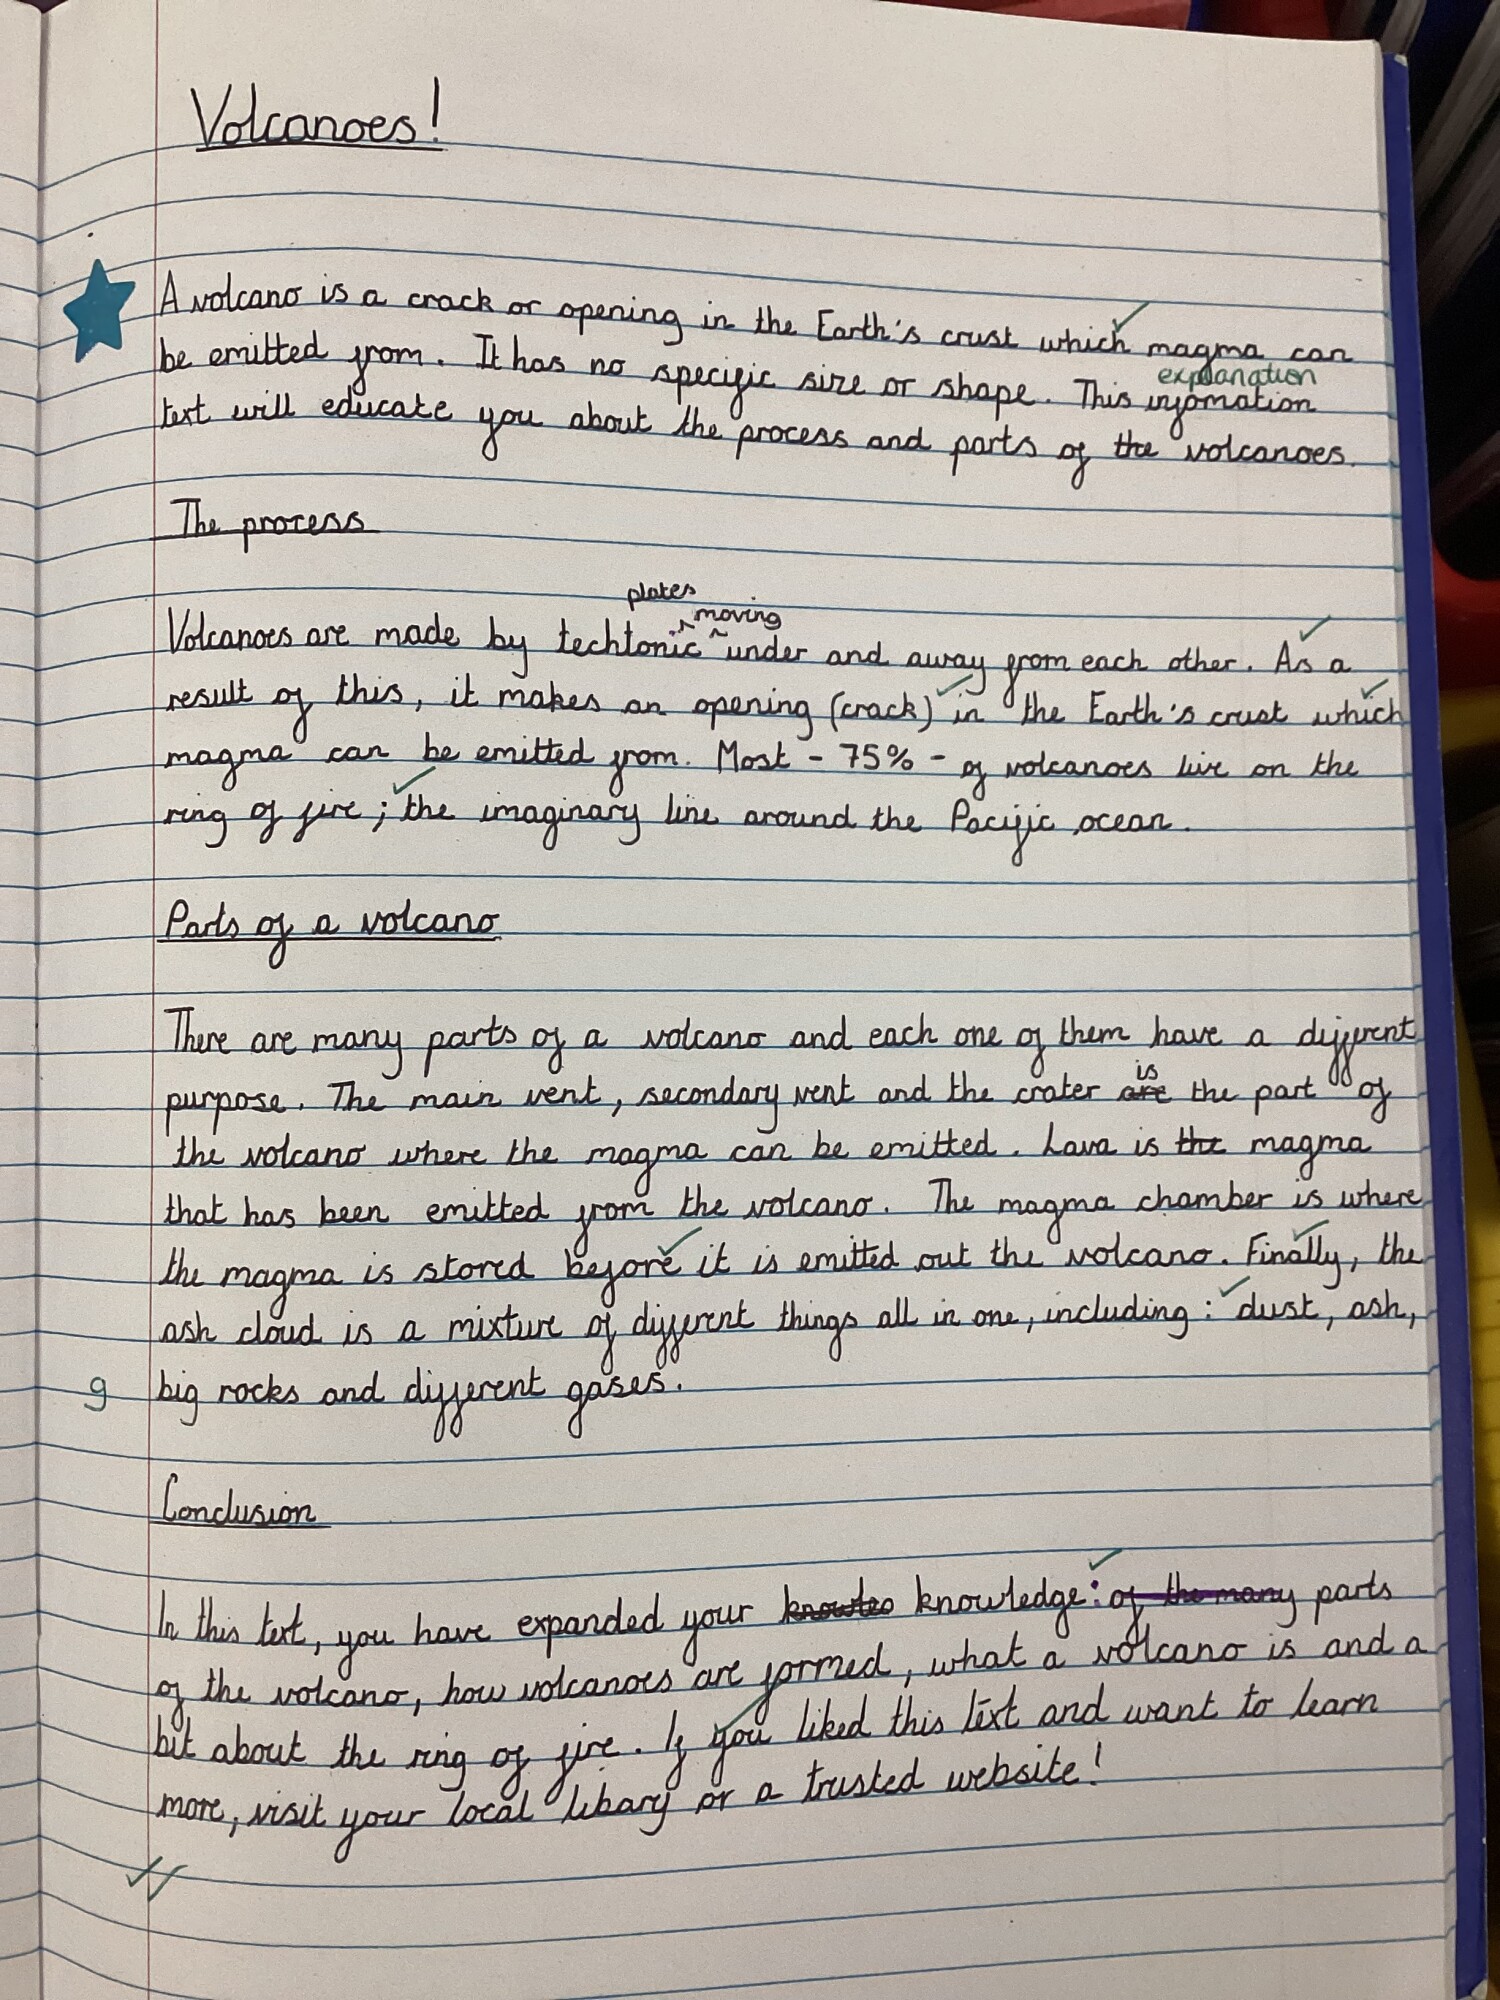 Volcanoes!
A volcano is a crack or opening in the Earth's crust which magma can
be emitted from. It has no specific size or shape. This infomation
explanation
text will educate you about the process and parts of the volcanoes.
The process
plates
moving
Volcanoes are made by techtonic under and away from each other. As a
result of this, it makes an opening (crack) in the Earth's crust which
magma can be emitted from. Most - 75% - of volcanoes live on the
ring of fire; the imaginary line around the Pacific ocean.
Parts of a volcano
There are many parts of a volcano and each one of them have a different
is
purpose. The main vent, secondary vent and the crater are the part of
the volcano where the magma can be emitted. Lava is the magma
that has been emitted from the volcano. The magma chamber is where
the magma is stored before it is emitted out the volcano. Finally, the
ash cloud is a mixture of different things all in one, including: dust, ash,
g big rocks and different gases.
Conclusion
In this text, you have expanded your knowledge: of the many parts
of the volcano, how volcanoes are formed, what a volcano is and a
bit about the ring of fire. If you liked this text and want to learn
more, visit your local libary or a trusted website!